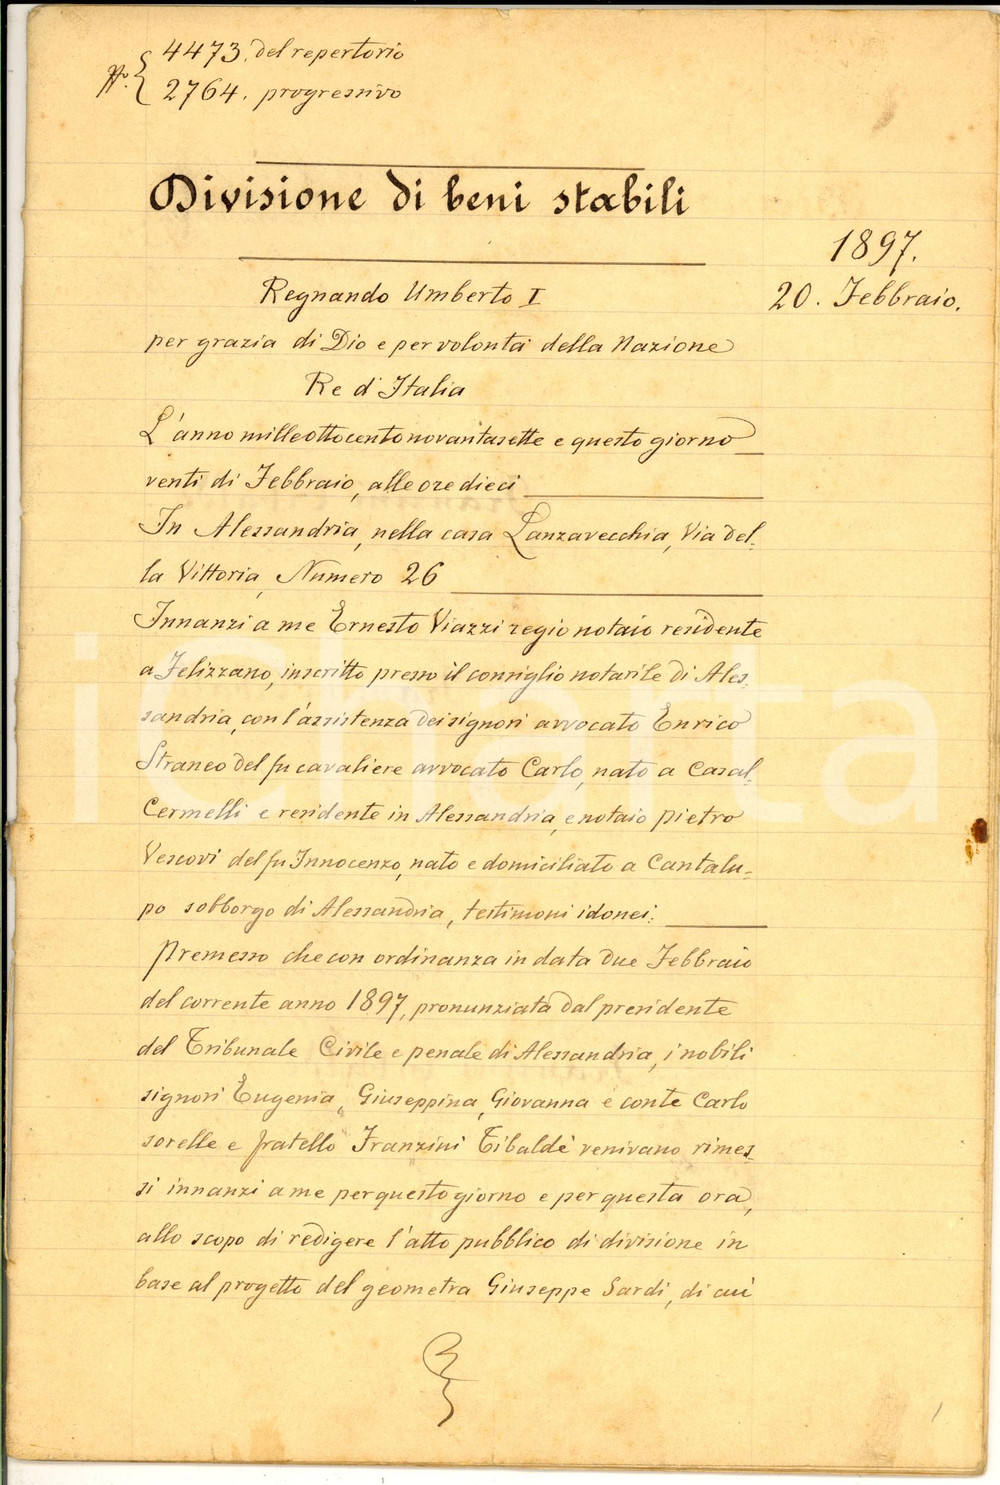 N.° { 4473. del repertorio
2764. progressivo
Divisione di beni stabili
1897.
20. Febbraio.
Regnando Umberto I
per grazia di Dio e per volontà della Nazione
Re d'Italia
L'anno milleottocentonovantasette e questo giorno
venti di Febbraio, alle ore dieci
In Alessandria, nella casa Lanzavecchia, Via del-
la Vittoria, Numero 26
Innanzi a me Ernesto Viazzi regio notaio residente
a Felizzano, inscritto presso il consiglio notarile di Ales-
sandria, con l'assistenza dei signori avvocato Enrico
Straneo del fu cavaliere avvocato Carlo, nato a Casal-
Cermelli e residente in Alessandria, e notaio Pietro
Vescovi del fu Innocenzo, nato e domiciliato a Cantalu-
po sobborgo di Alessandria, testimoni idonei:
Premesso che con ordinanza in data due Febbraio
del corrente anno 1897, pronunziata dal presidente
del Tribunale Civile e penale di Alessandria, i nobili
signori Eugenia, Giuseppina, Giovanna e conte Carlo
sorelle e fratello Franzini Tibaldè venivano rimes-
si innanzi a me per questo giorno e per questa ora,
allo scopo di redigere l'atto pubblico di divisione in
base al progetto del geometra Giuseppe Sardi, di cui
1
idelcita